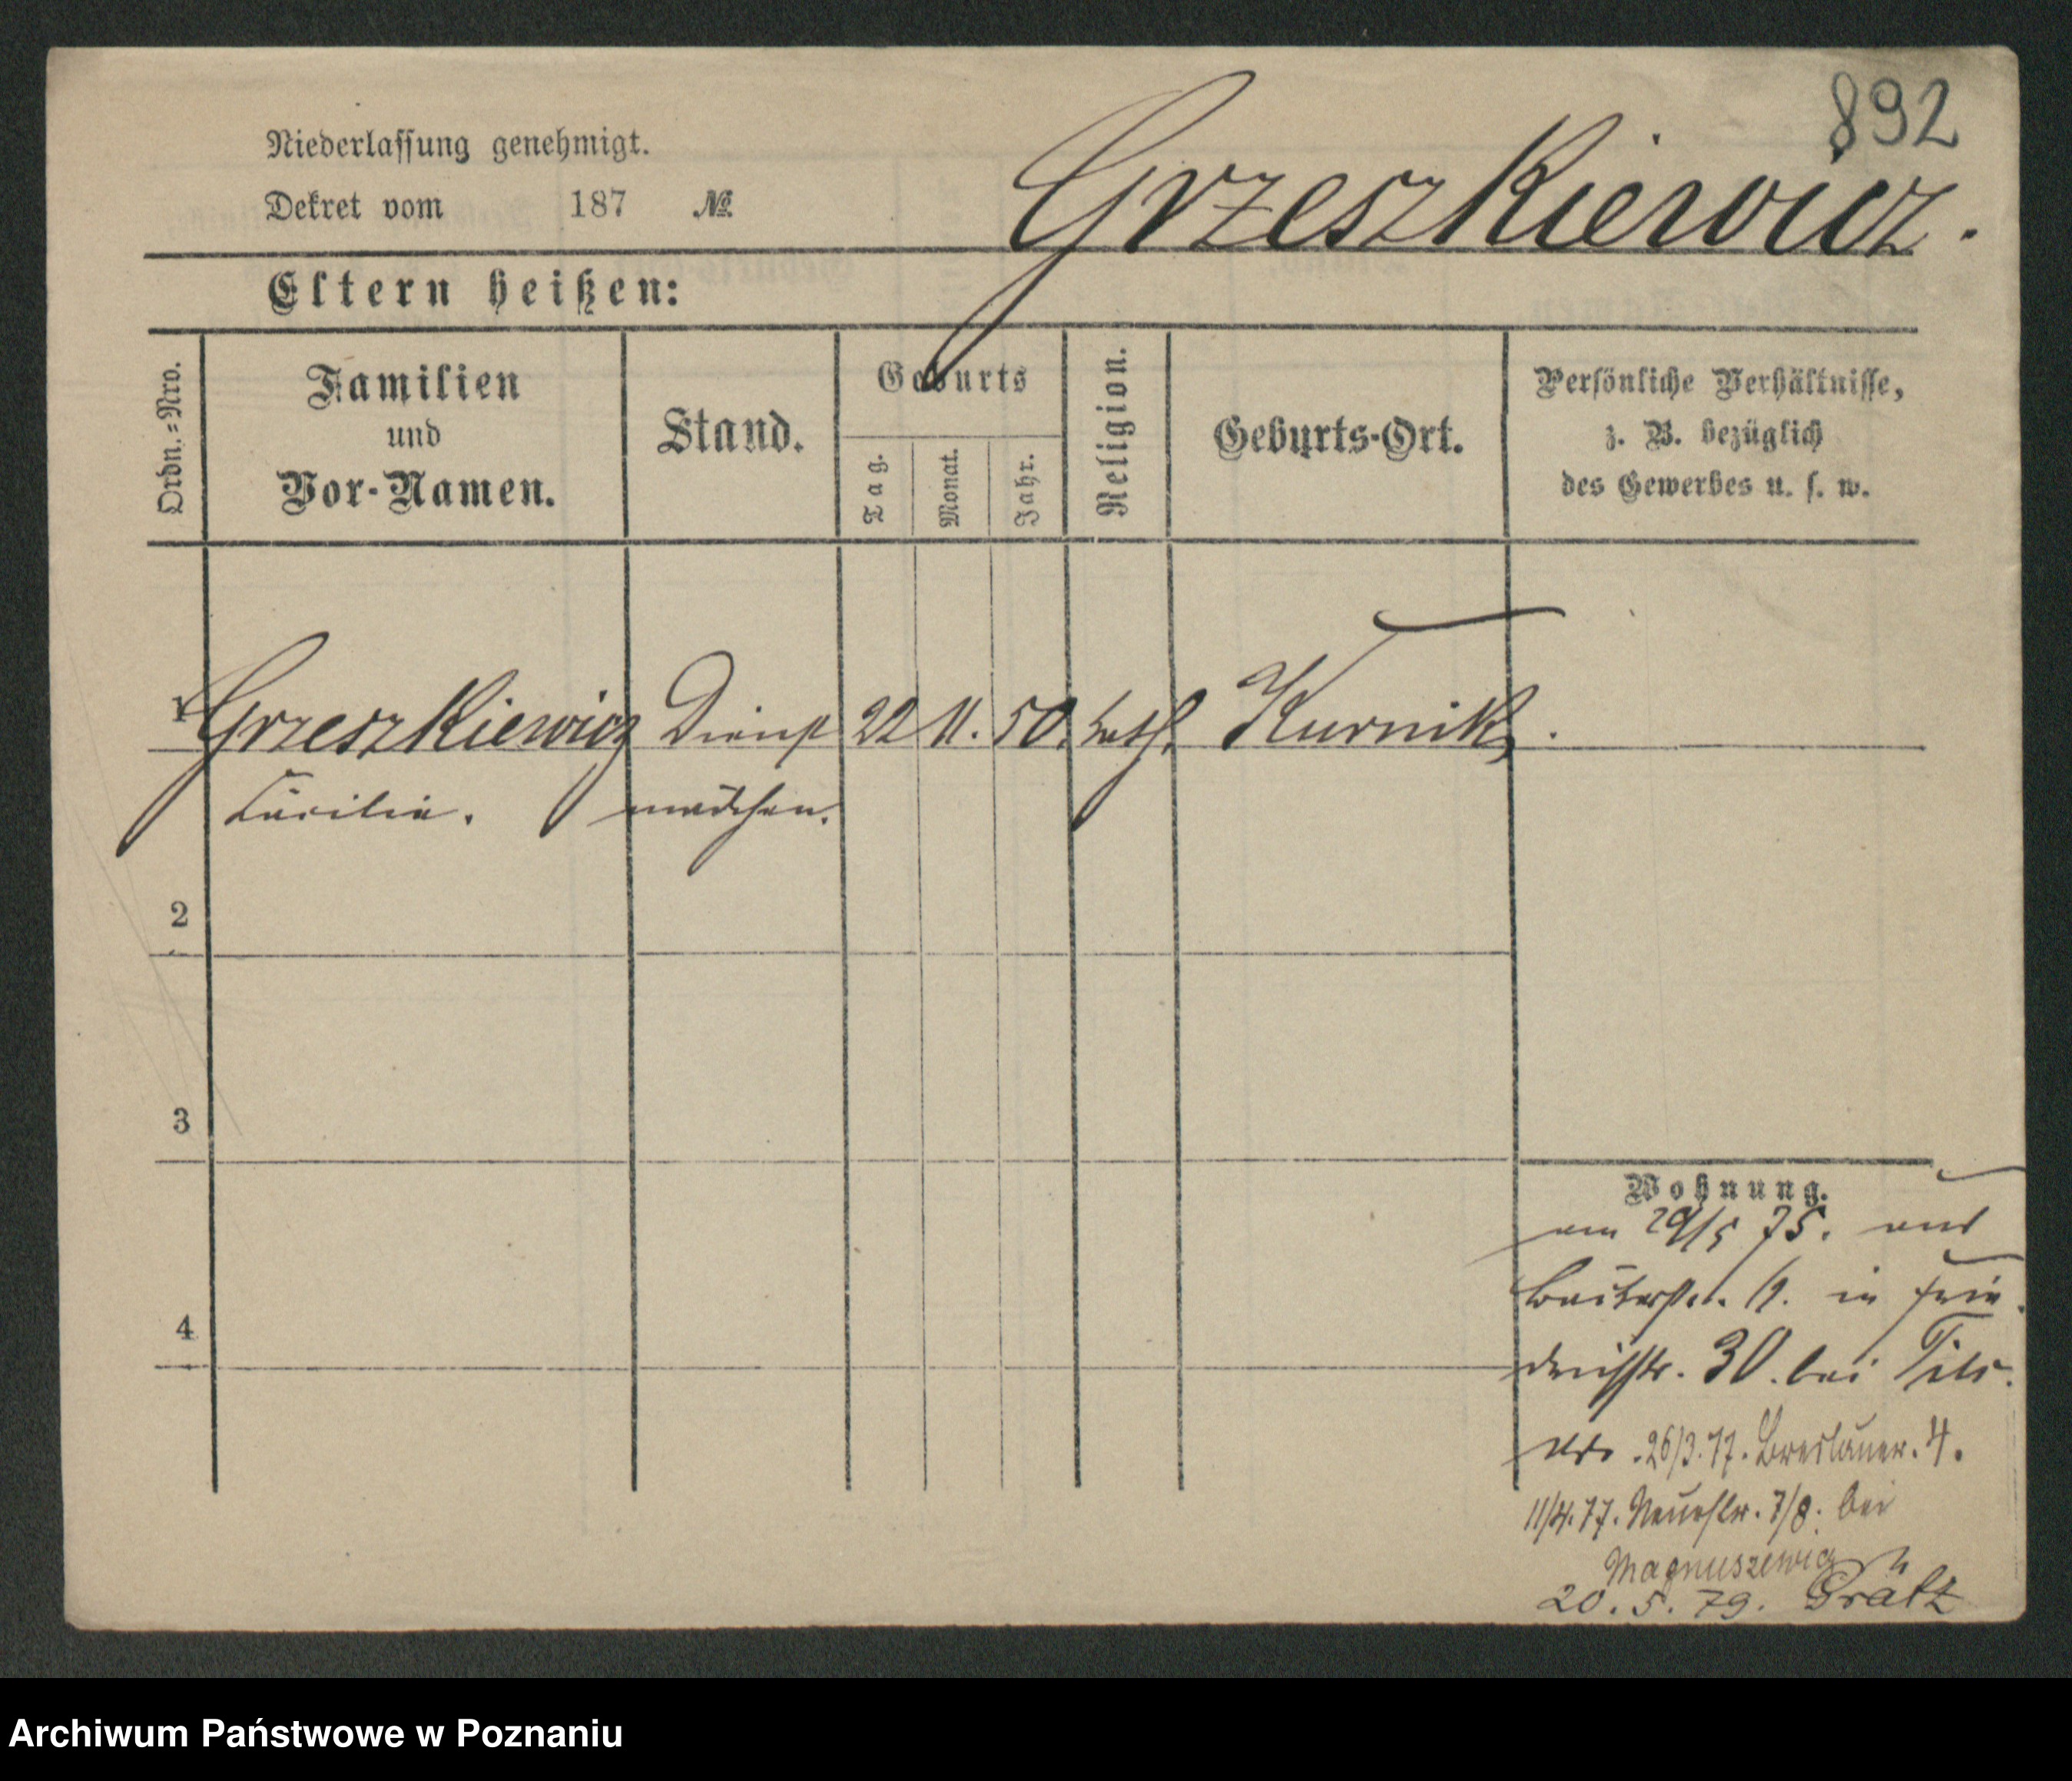 892
Niederlassung genehmigt.
Dekret vom 187 №
Grzeszkiewicz.
Eltern heißen:
Ordn.=Nro.
Familien
und
Vor-Namen.
Stand.
Geburts
Tag.
Monat.
Jahr.
Religion.
Geburts-Ort.
Persönliche Verhältnisse,
z. B. bezüglich
des Gewerbes u. s. w.
1 Grzeszkiewicz Dienst 22 11. 50. kath. Kurnik.
Cäcilie. mädchen.
2
3
4
Wohnung.
am 29/5 75. aus
14. in Frie
drichstr. 30. bei
26/3. 77. Breslauer. 4.
11/4. 77. Neuestr. 7/8. bei
Magnuszewicz
20. 5. 79. Grätz
Archiwum Państwowe w Poznaniu